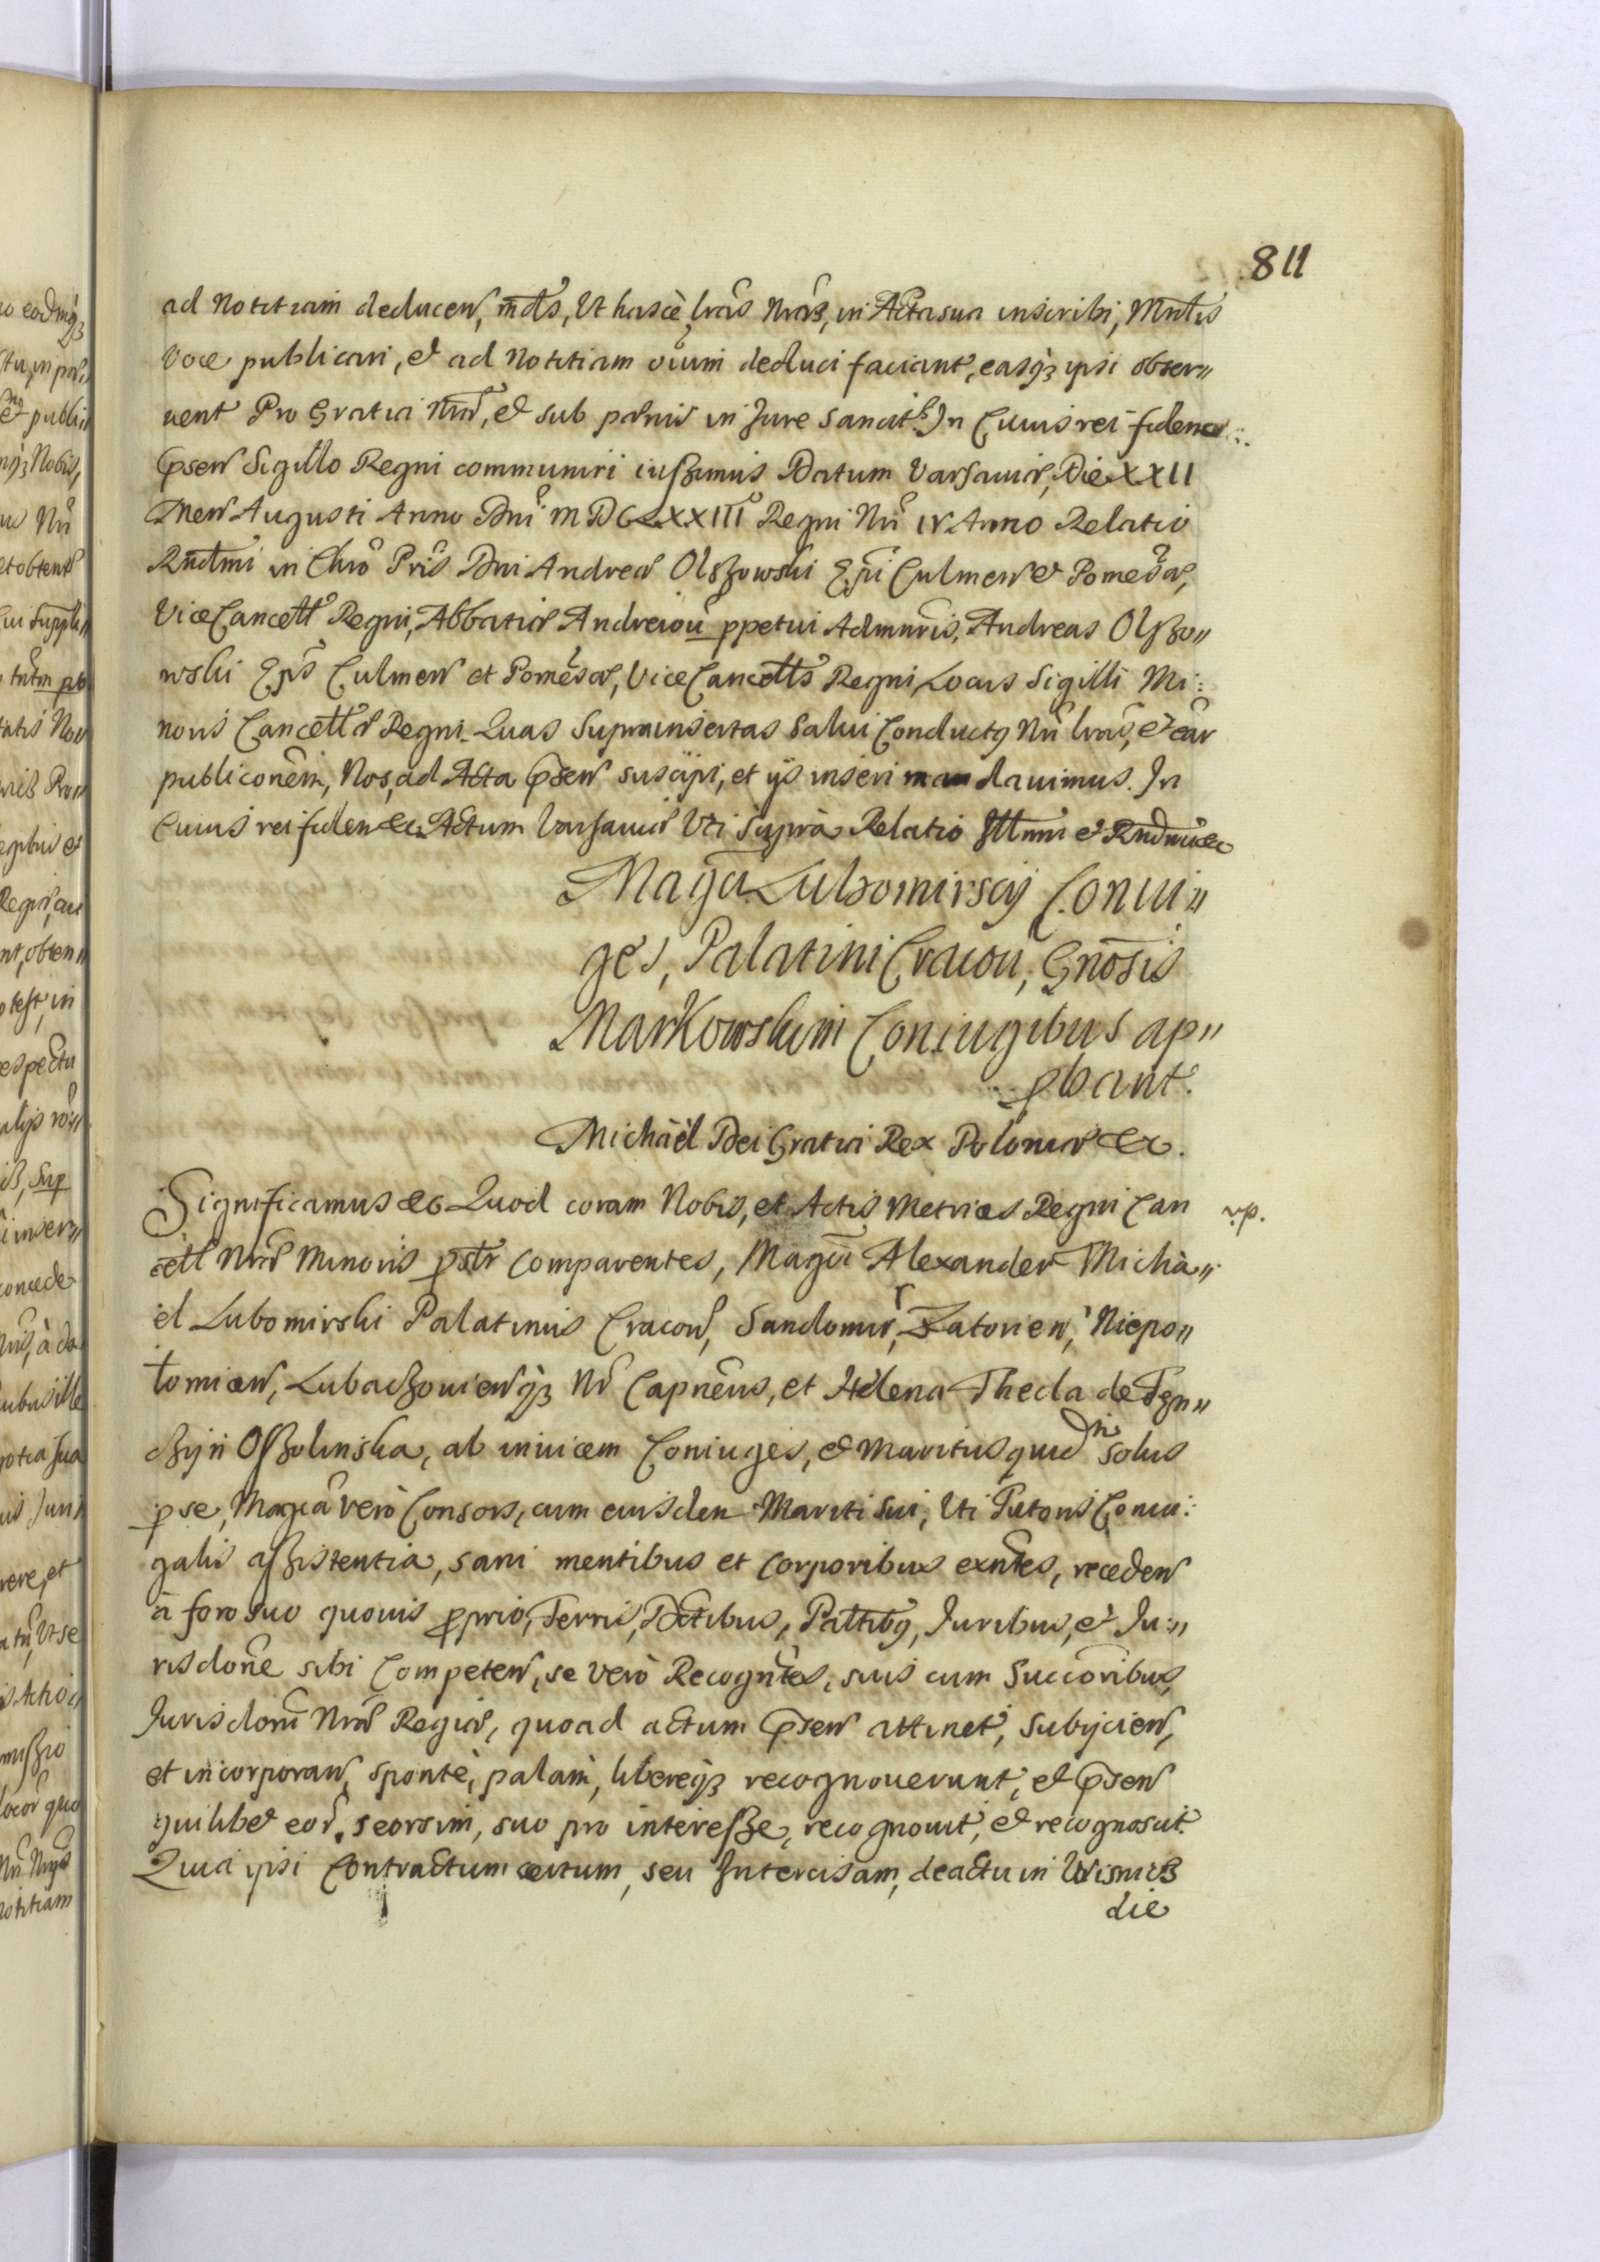 811
ad Notitiam deducen, mdts, Ut hasce lras nras, in Acta sua inscribi, Mntis
Voce publicari, et ad Notitiam oium deduci faciant, easq3 ipsi obser〃
uent Pro Gratia nra, et sub poenis in Jure sancit. In Cuius rei fidem &c.
Psen Sigillo Regni communiri iussimus Datum Varsauiae, Die XXII
Men Augusti Anno Dni MDCLXXIII Regni Nri IV Anno Relatio
Rndmi in Chro Pris Dni Andreae Olszowski Epi Culmen et Pomesa,
ViceCancell Regni, Abbatiae Andreiou ppetui Admnris, Andreas Olszo〃
wski Eps Culmen et Pomesa, ViceCancells Regni, Locus Sigilli Mi:
noris Cancell Regni. Quas Suprainsertas Salui Conductus Nri lras, et ear
publiconem, Nos, ad Acta Psen suscipi, et ijs inseri mandauimus. In
Cuius rei fidem &c. Actum Varsauiae Uti Supra Relatio Illmi et Rndmi &c
Magci Lubomirscy Coniu〃
ges, Palatini Cracou, Gnosis
Markowskim Coniugibus ap〃
pbant.
Michaël Dei Gratia Rex Poloniae &c.
Significamus &c Quod coram Nobis, et Actis Metrices Regni Can
cell Nrae Minoris pstr comparentes, Magci Alexander Micha〃
el Lubomirski Palatinus Cracou, Sandomir, Zatorien, Niepo〃
lomicen, Lubaczouienq3 Nr Capneus, et Helena Thecla de Ten〃
czyn Ossolinska, ab inuicem Coniuges, et Maritus quidm solus
p se, Magca vero Consors, cum eiusdem Mariti sui, Uti Tutoris Coniu:
galis assistentia, sani mentibus et corporibus exntes, receden
a foro suo quouis pprio, Terris, Dctibus, Palttibq, Juribus, et Ju:〃
risdone sibi Competen, se vero Recogntes, suis cum Succoribus,
Jurisdoni Nrae Regiae, quoad actum Psen attinet, subijcien,
et incorporan, sponte, palam, libereq3 recognouerunt, et Psen
quilibet eor, seorsim, suo pro interesse, recognouit, et recognoscit
Quia ipsi Contractum certum, seu Intercisam, de actu in Wisnicz
die